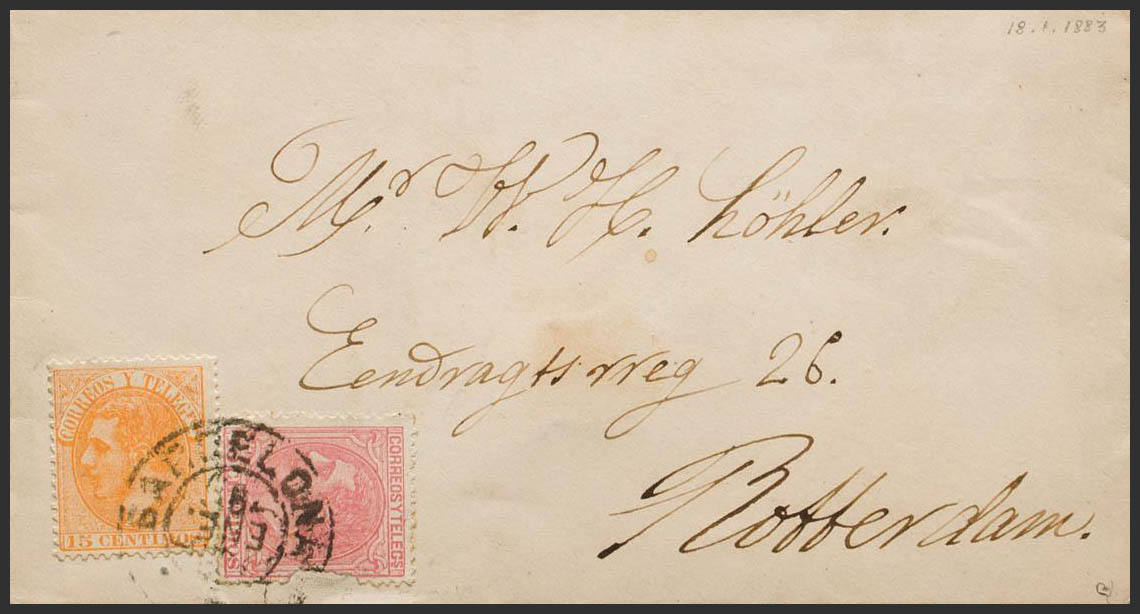 18.1.1883
Mr. W. H. Köhler.
Eendragtsweg 26.
Rotterdam.
CORREOS Y TELEGS
15 CENTIMOS
CORREOS Y TELEGS
BARCELONA